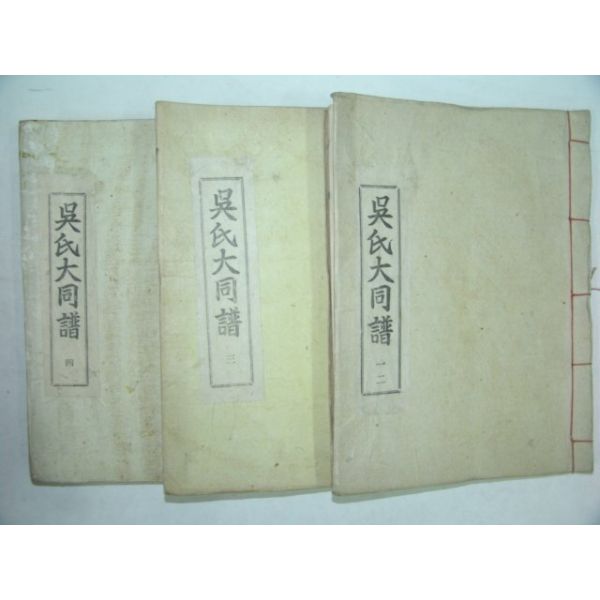 吳氏大同譜 一二
吳氏大同譜 三
吳氏大同譜 四